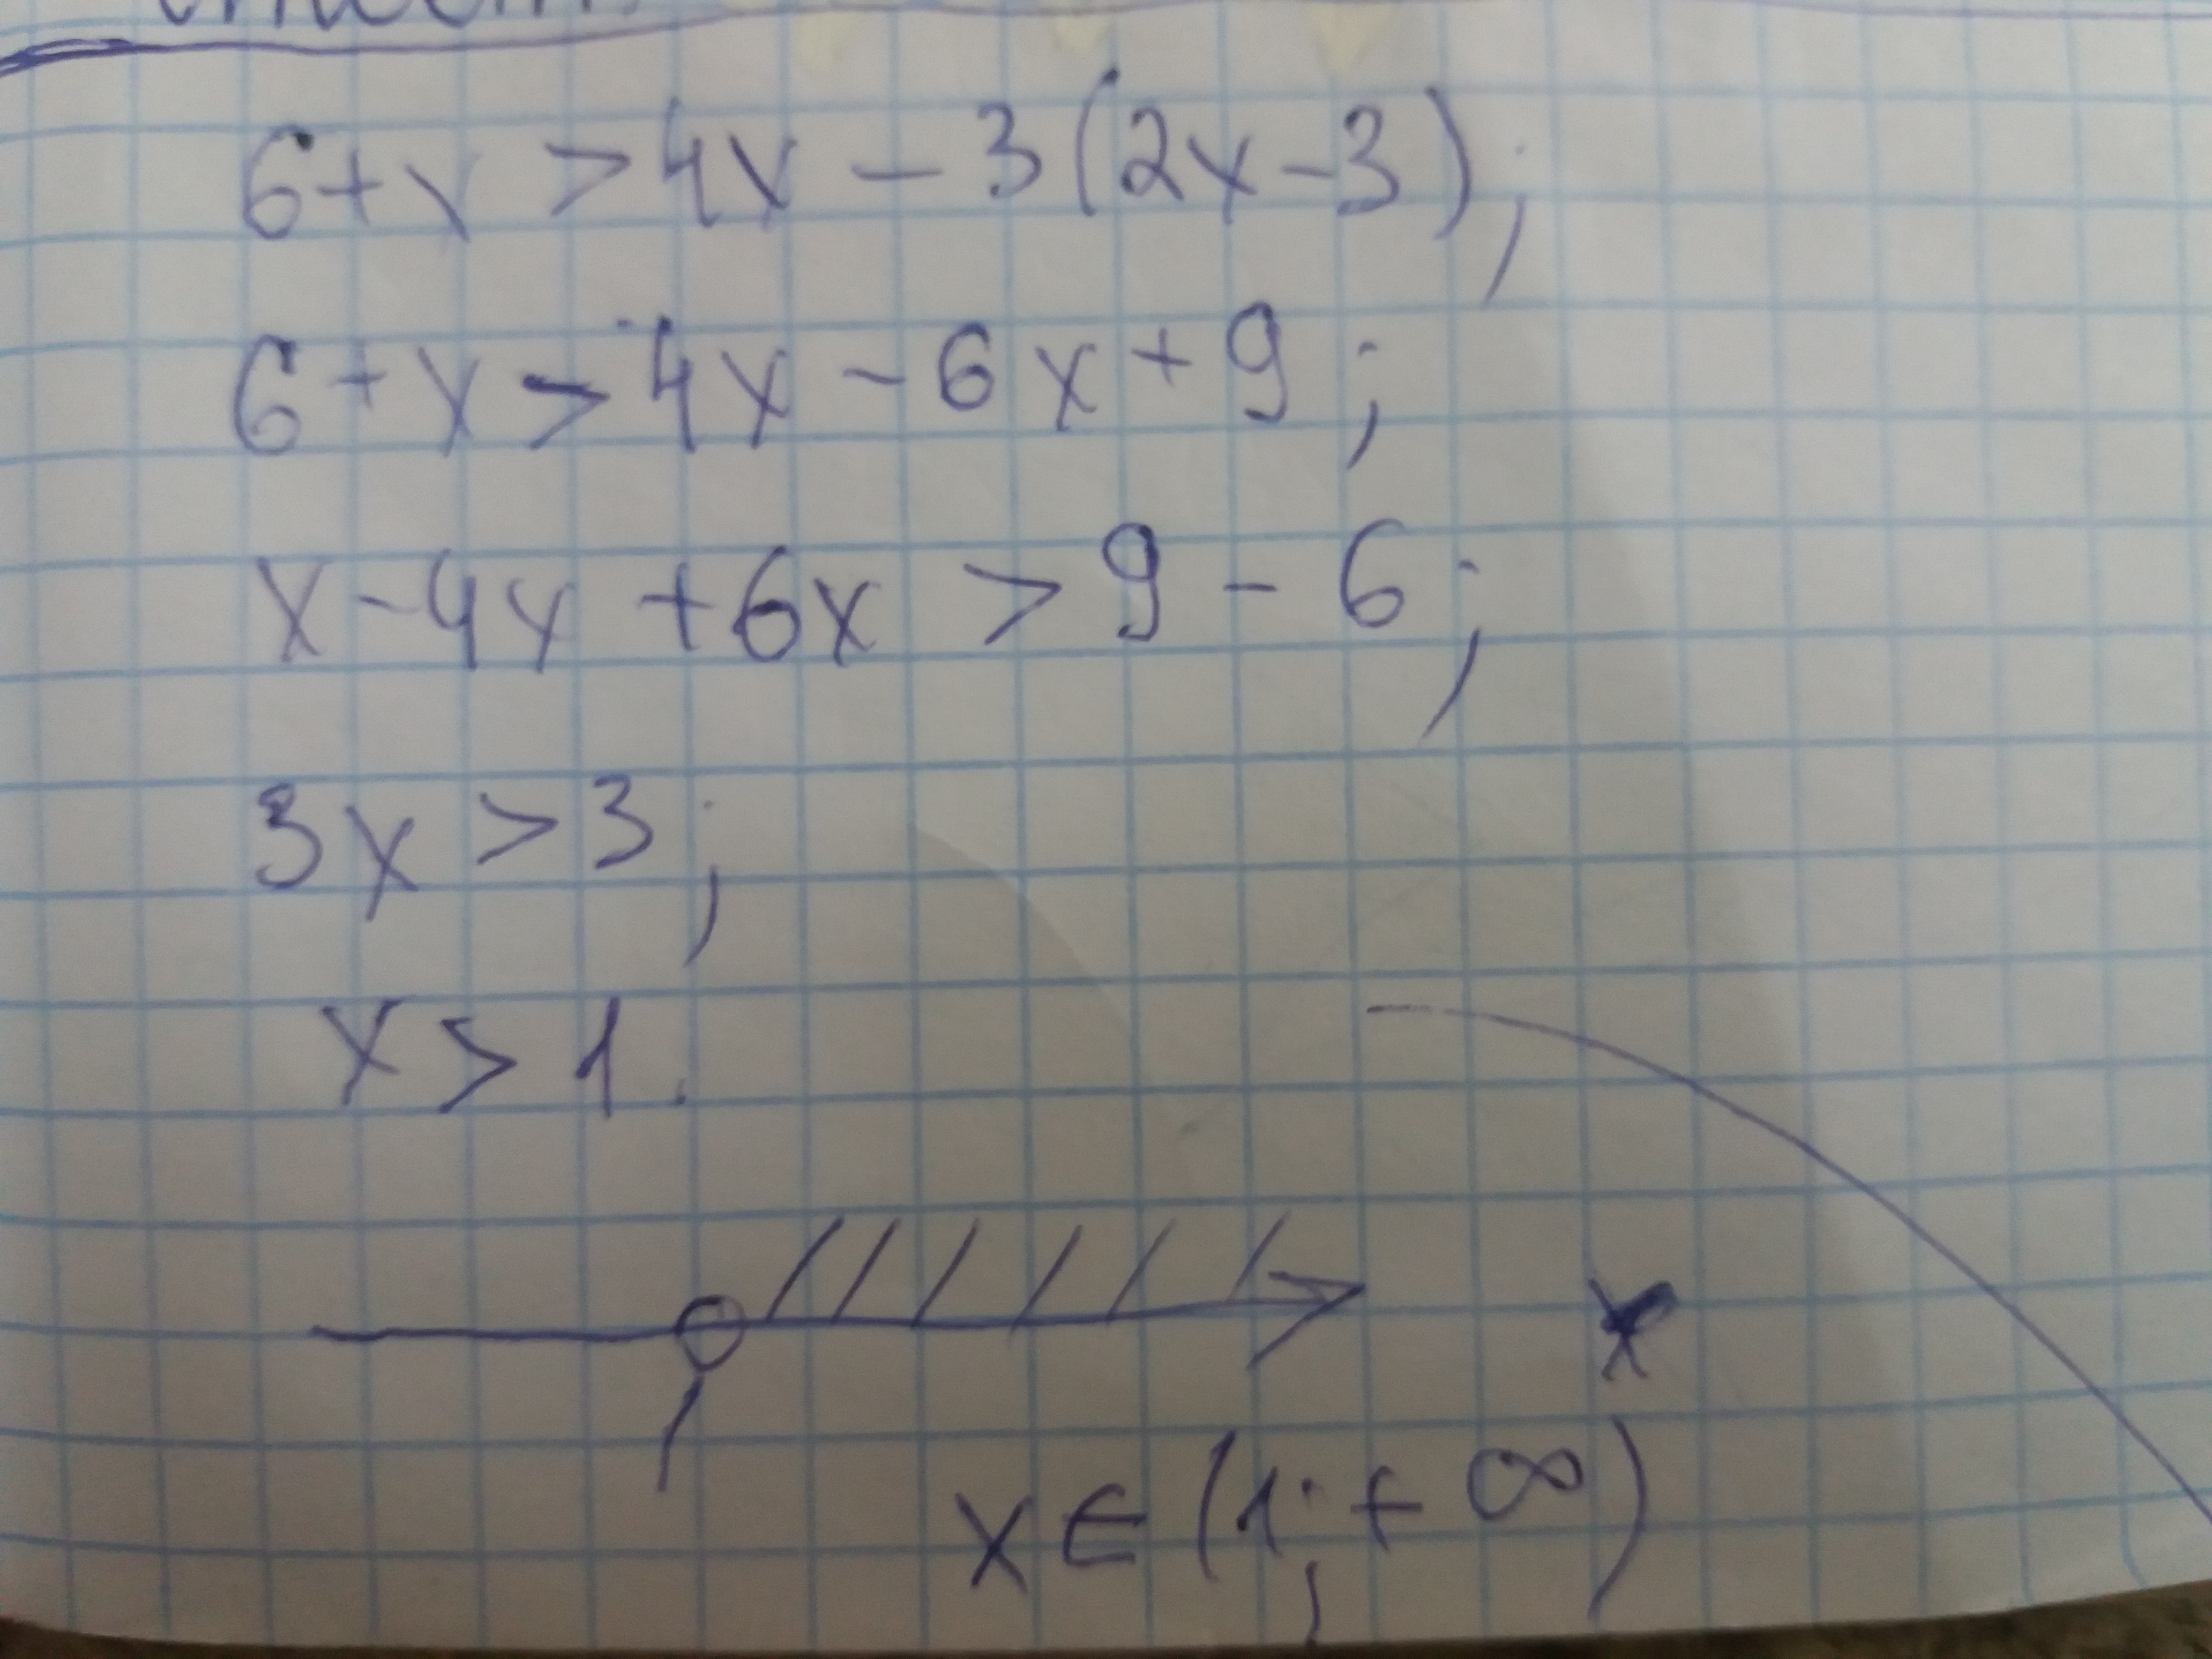 6+x > 4x - 3(2x-3);
6+x > 4x - 6x + 9;
x - 4x + 6x > 9 - 6;
3x > 3;
x > 1.
1
x
x ∈ (1; + ∞)